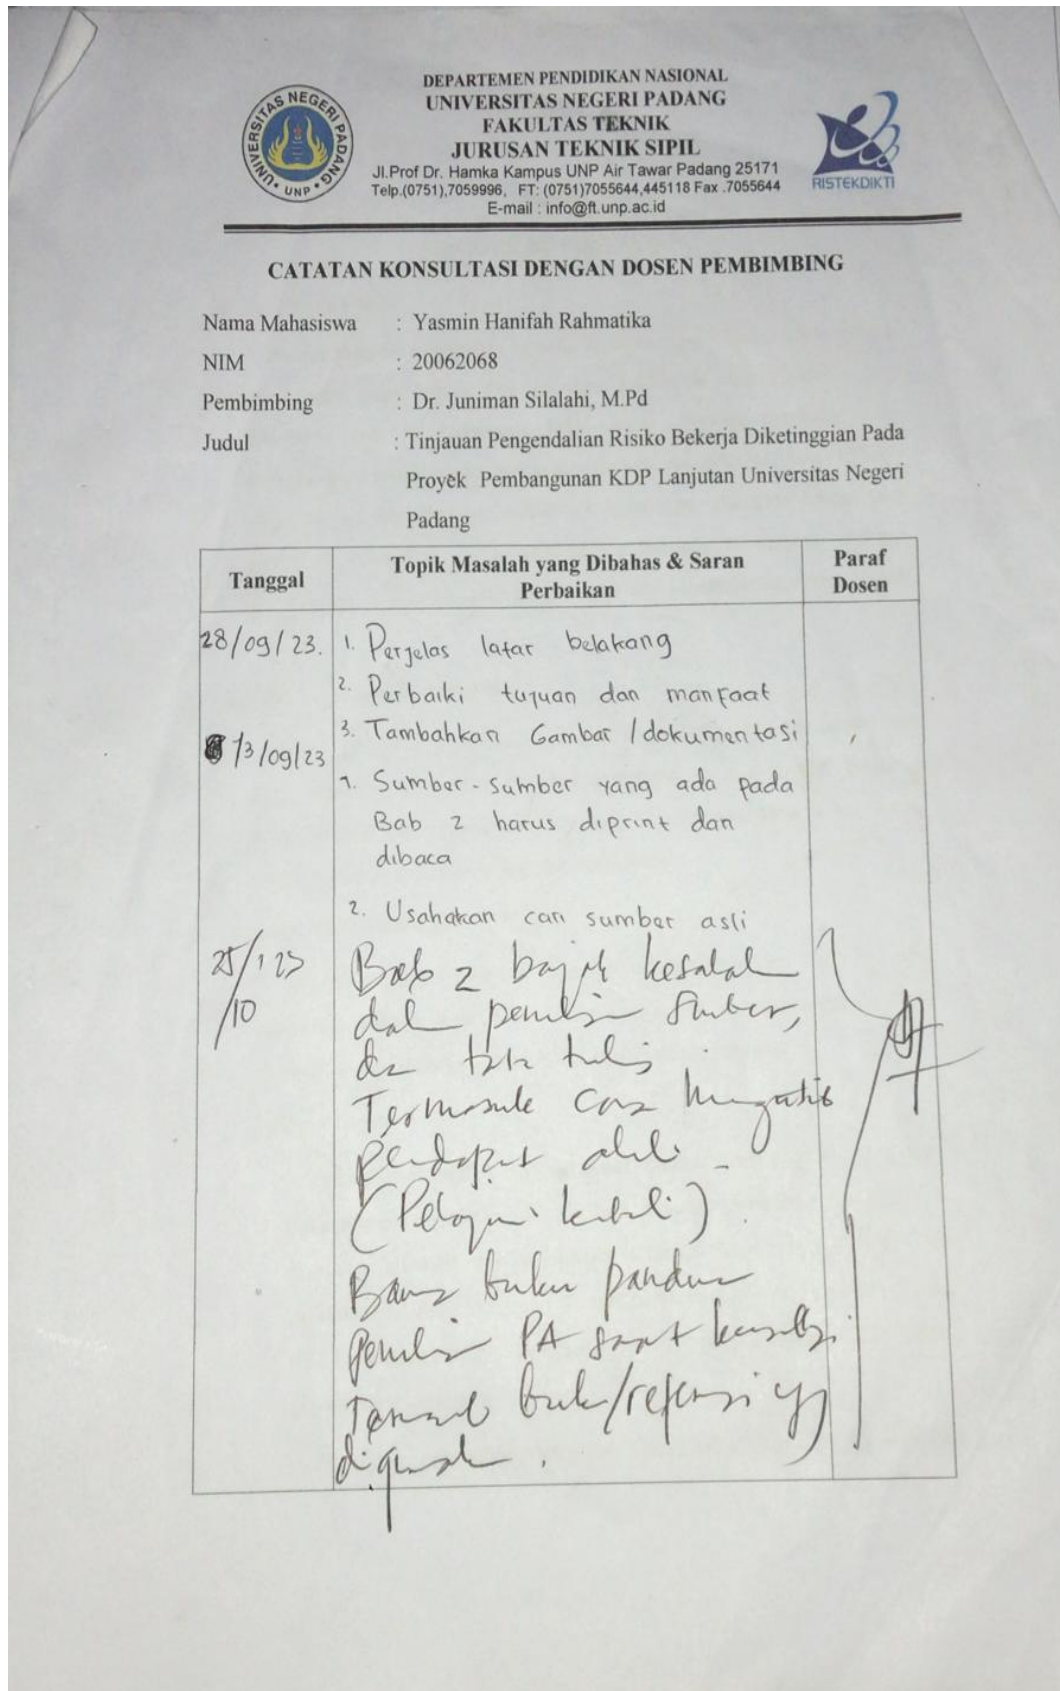 UNIVERSITAS NEGERI PADANG
UNP
DEPARTEMEN PENDIDIKAN NASIONAL
UNIVERSITAS NEGERI PADANG
FAKULTAS TEKNIK
JURUSAN TEKNIK SIPIL
Jl.Prof Dr. Hamka Kampus UNP Air Tawar Padang 25171
Telp.(0751),7059996, FT: (0751)7055644,445118 Fax .7055644
E-mail : info@ft.unp.ac.id
RISTEKDIKTI
CATATAN KONSULTASI DENGAN DOSEN PEMBIMBING
Nama Mahasiswa : Yasmin Hanifah Rahmatika
NIM : 20062068
Pembimbing : Dr. Juniman Silalahi, M.Pd
Judul : Tinjauan Pengendalian Risiko Bekerja Diketinggian Pada
Proyek Pembangunan KDP Lanjutan Universitas Negeri
Padang
Tanggal Topik Masalah yang Dibahas & Saran Paraf
Perbaikan Dosen
28/09/23. 1. Perjelas latar belakang
2. Perbaiki tujuan dan manfaat
3. Tambahkan Gambar /dokumentasi
13/09/23
1. Sumber-sumber yang ada pada
Bab 2 harus diprint dan
dibaca
2. Usahakan cari sumber asli
Bab 2
/10
Termasuk cara
pendapat ahli
Bawa buku panduan
PA saat
buku/referensi yg